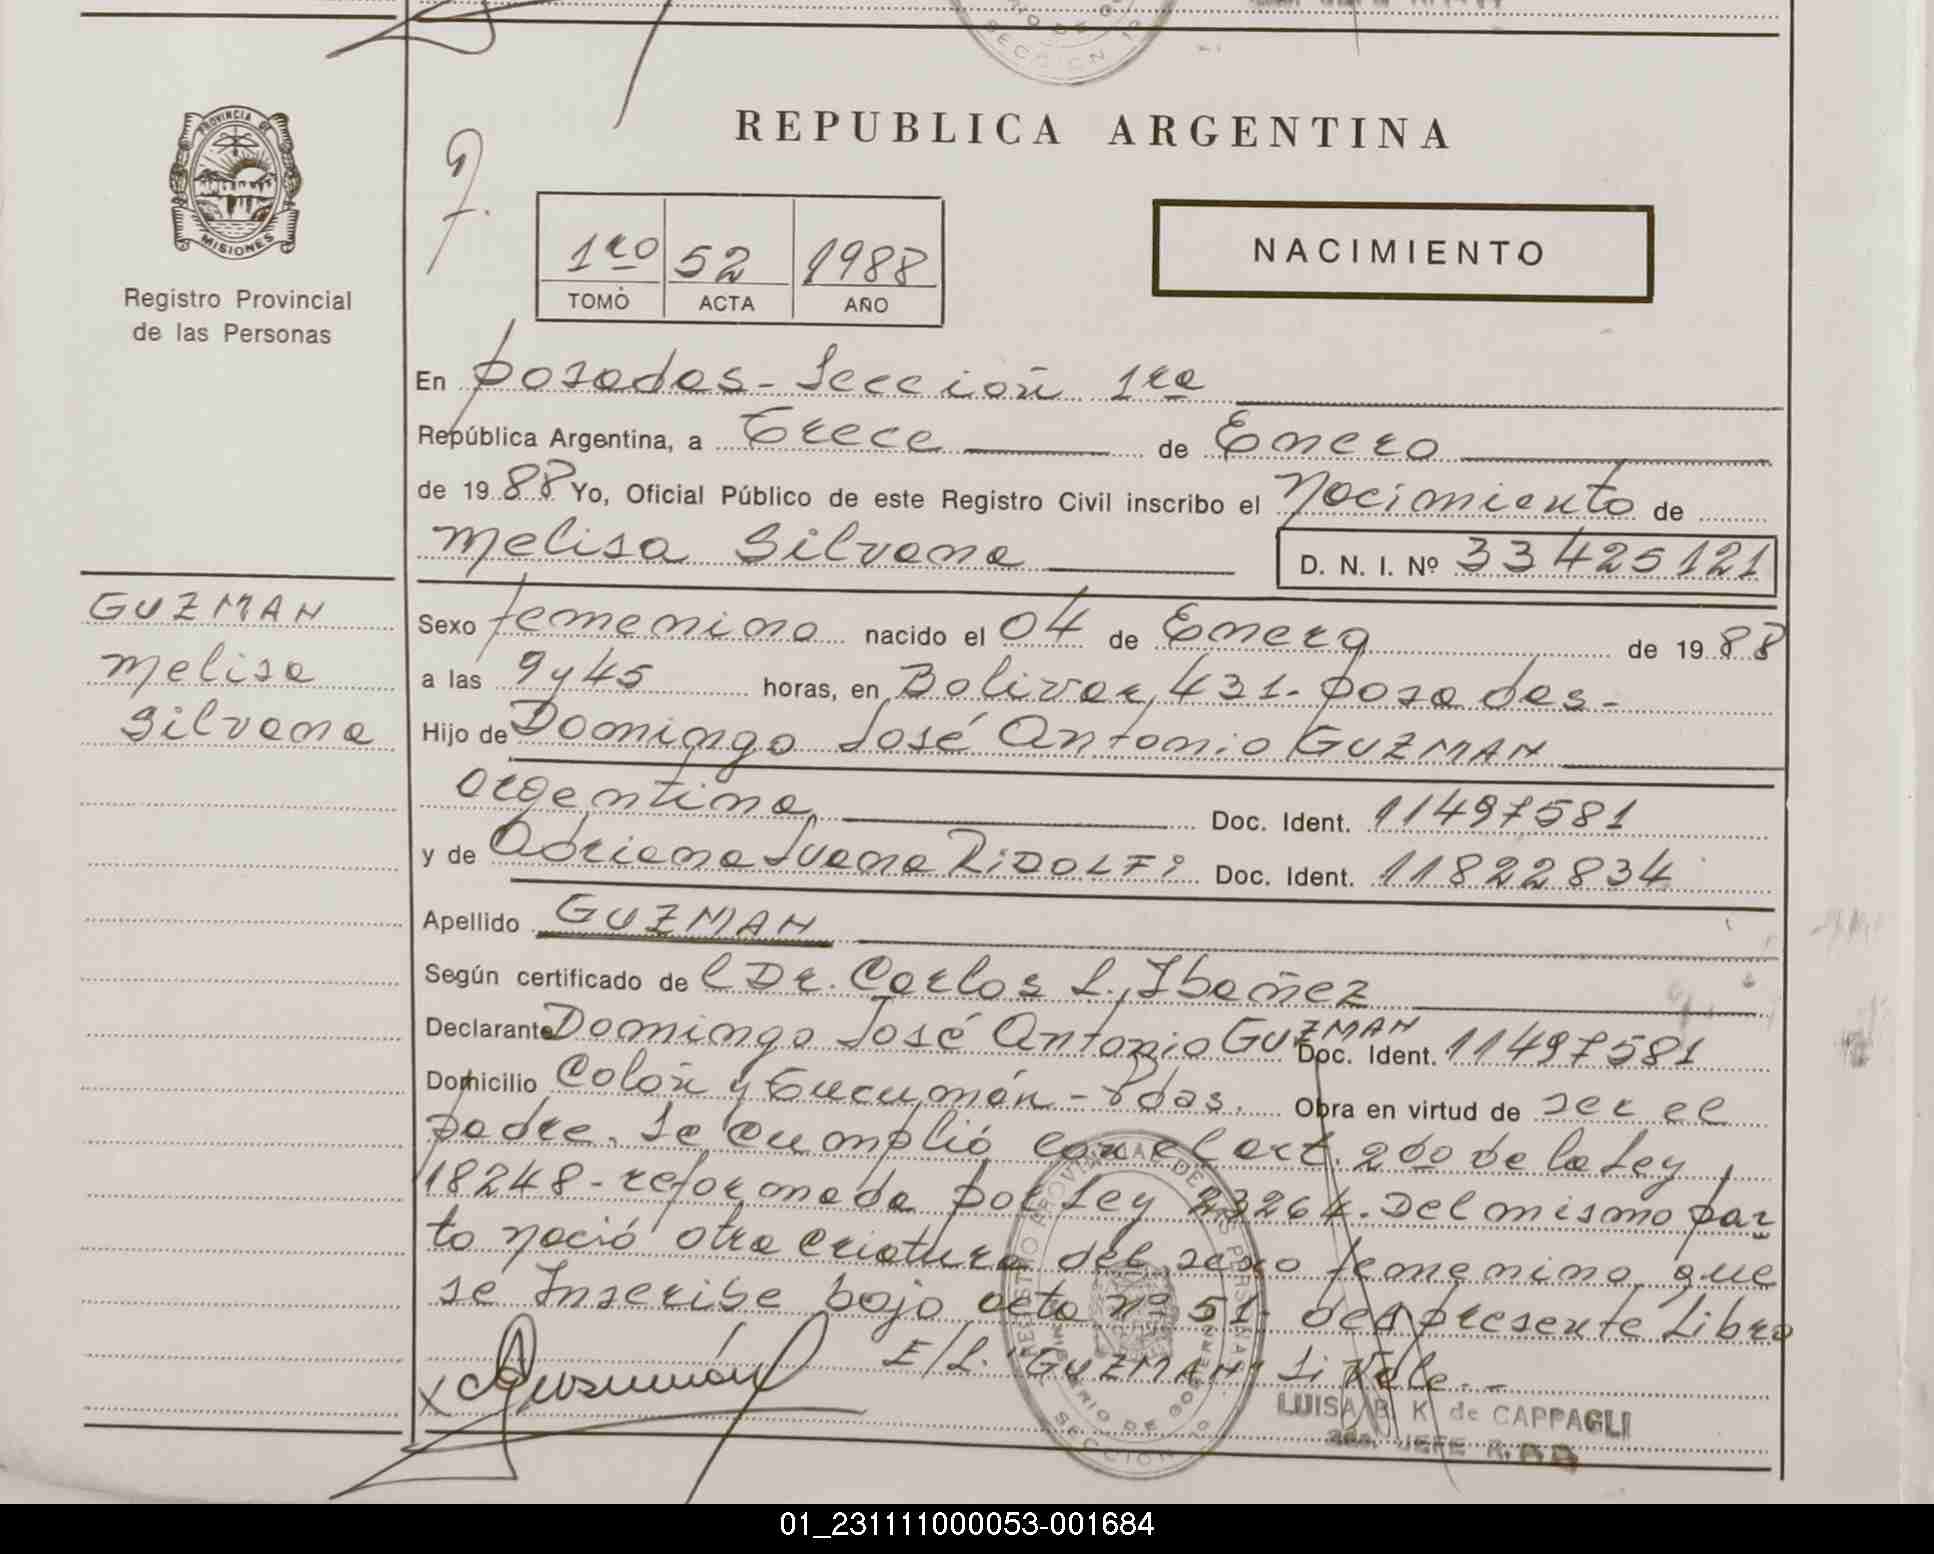 REPUBLICA ARGENTINA
PROVINCIA DE
MISIONES
Registro Provincial
de las Personas
1ro 52 1988
TOMO ACTA AÑO
NACIMIENTO
En Posadas - Sección 1ra
República Argentina, a Trece de Enero
de 1988 Yo, Oficial Público de este Registro Civil inscribo el Nacimiento de
Melisa Silvana D. N. I. Nº 33425121
GUZMAN
Melisa
Silvana
Sexo femenino nacido el 04 de Enero de 1988
a las 9 y 45 horas, en Bolivar, 431 - Posadas -
Hijo de Domingo José Antonio GUZMAN
argentina Doc. Ident. 11497581
y de Adriana Juana RIDOLFI Doc. Ident. 11822834
Apellido GUZMAN
Según certificado de l Dr. Carlos L. Ibañez
Declarante Domingo José Antonio GUZMAN Doc. Ident. 11497581
Domicilio Colón y Tucumán - Pdas. Obra en virtud de ser el
padre. Se cumplió con el art. 2do de la Ley
18248 - reformada por Ley 23264. Del mismo par
to nació otra criatura del sexo femenino que
se Inscribe bajo acta nº 51 del presente Libro
E/L. "GUZMAN" Si Vale. -
x Guzmán
REGISTRO PROVINCIAL DE LAS PERSONAS
MINISTERIO DE GOBIERNO
SECCION
LUISA B. K. de CAPPAGLI
2da. JEFE R.
01_231111000053-001684